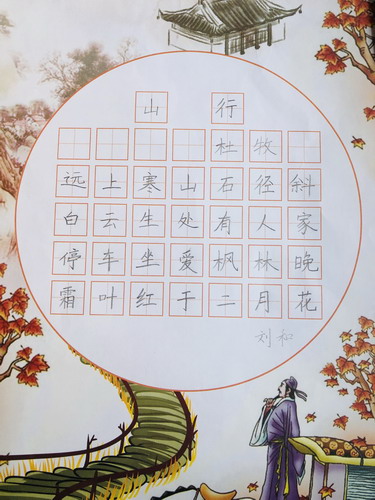 山行
杜牧
远上寒山石径斜
白云生处有人家
停车坐爱枫林晚
霜叶红于二月花
刘和